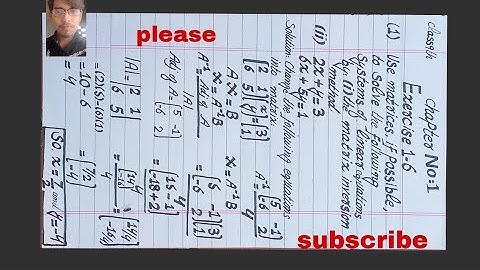 please
subscribe
Class9th Chapter No:1
Exercise 1-6
(1) Use matrices, if possible,
to solve the following
systems of linear equations
by: (i) the matrix inversion
method
(ii) 2x+y=3
6x+5y=1
Solution: Change the following equations
into matrix
[2 1] [x] = [3]
[6 5] [y] = [1]
AX=B
X=A⁻¹B
A⁻¹= Adj of A
|A|
Adj of A = [5 -1]
[-6 2]
|A|= |2 1|
|6 5|
=(2)(5)-(6)(1)
=10-6
=4
A⁻¹ = [5 -1]
[-6 2]
4
X=A⁻¹B
= [5 -1] [3]
[-6 2] [1]
4
= [15-1]
[-18+2]
4
= [14/4]
[-16/4]
= [7/2]
[-4]
So x=7/2 and y=-4